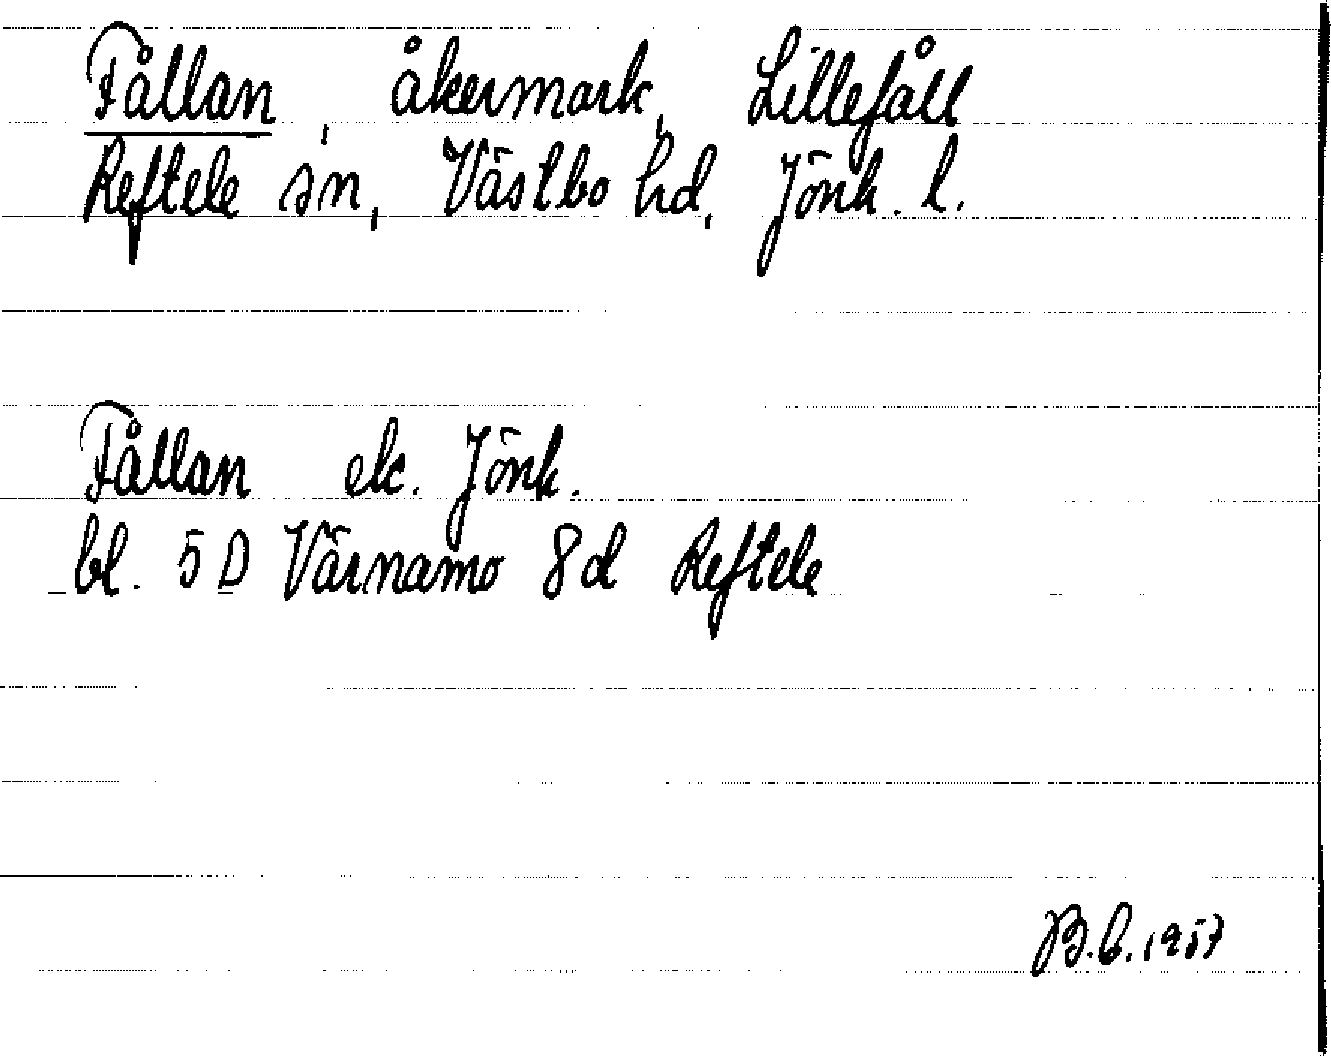 Fållan, åkermark, Lillefåll
Reftele sn, Västbo hd, Jönk. l.
Fållan ek. Jönk.
bl. 5 D Värnamo 8d Reftele
B.b. 1957